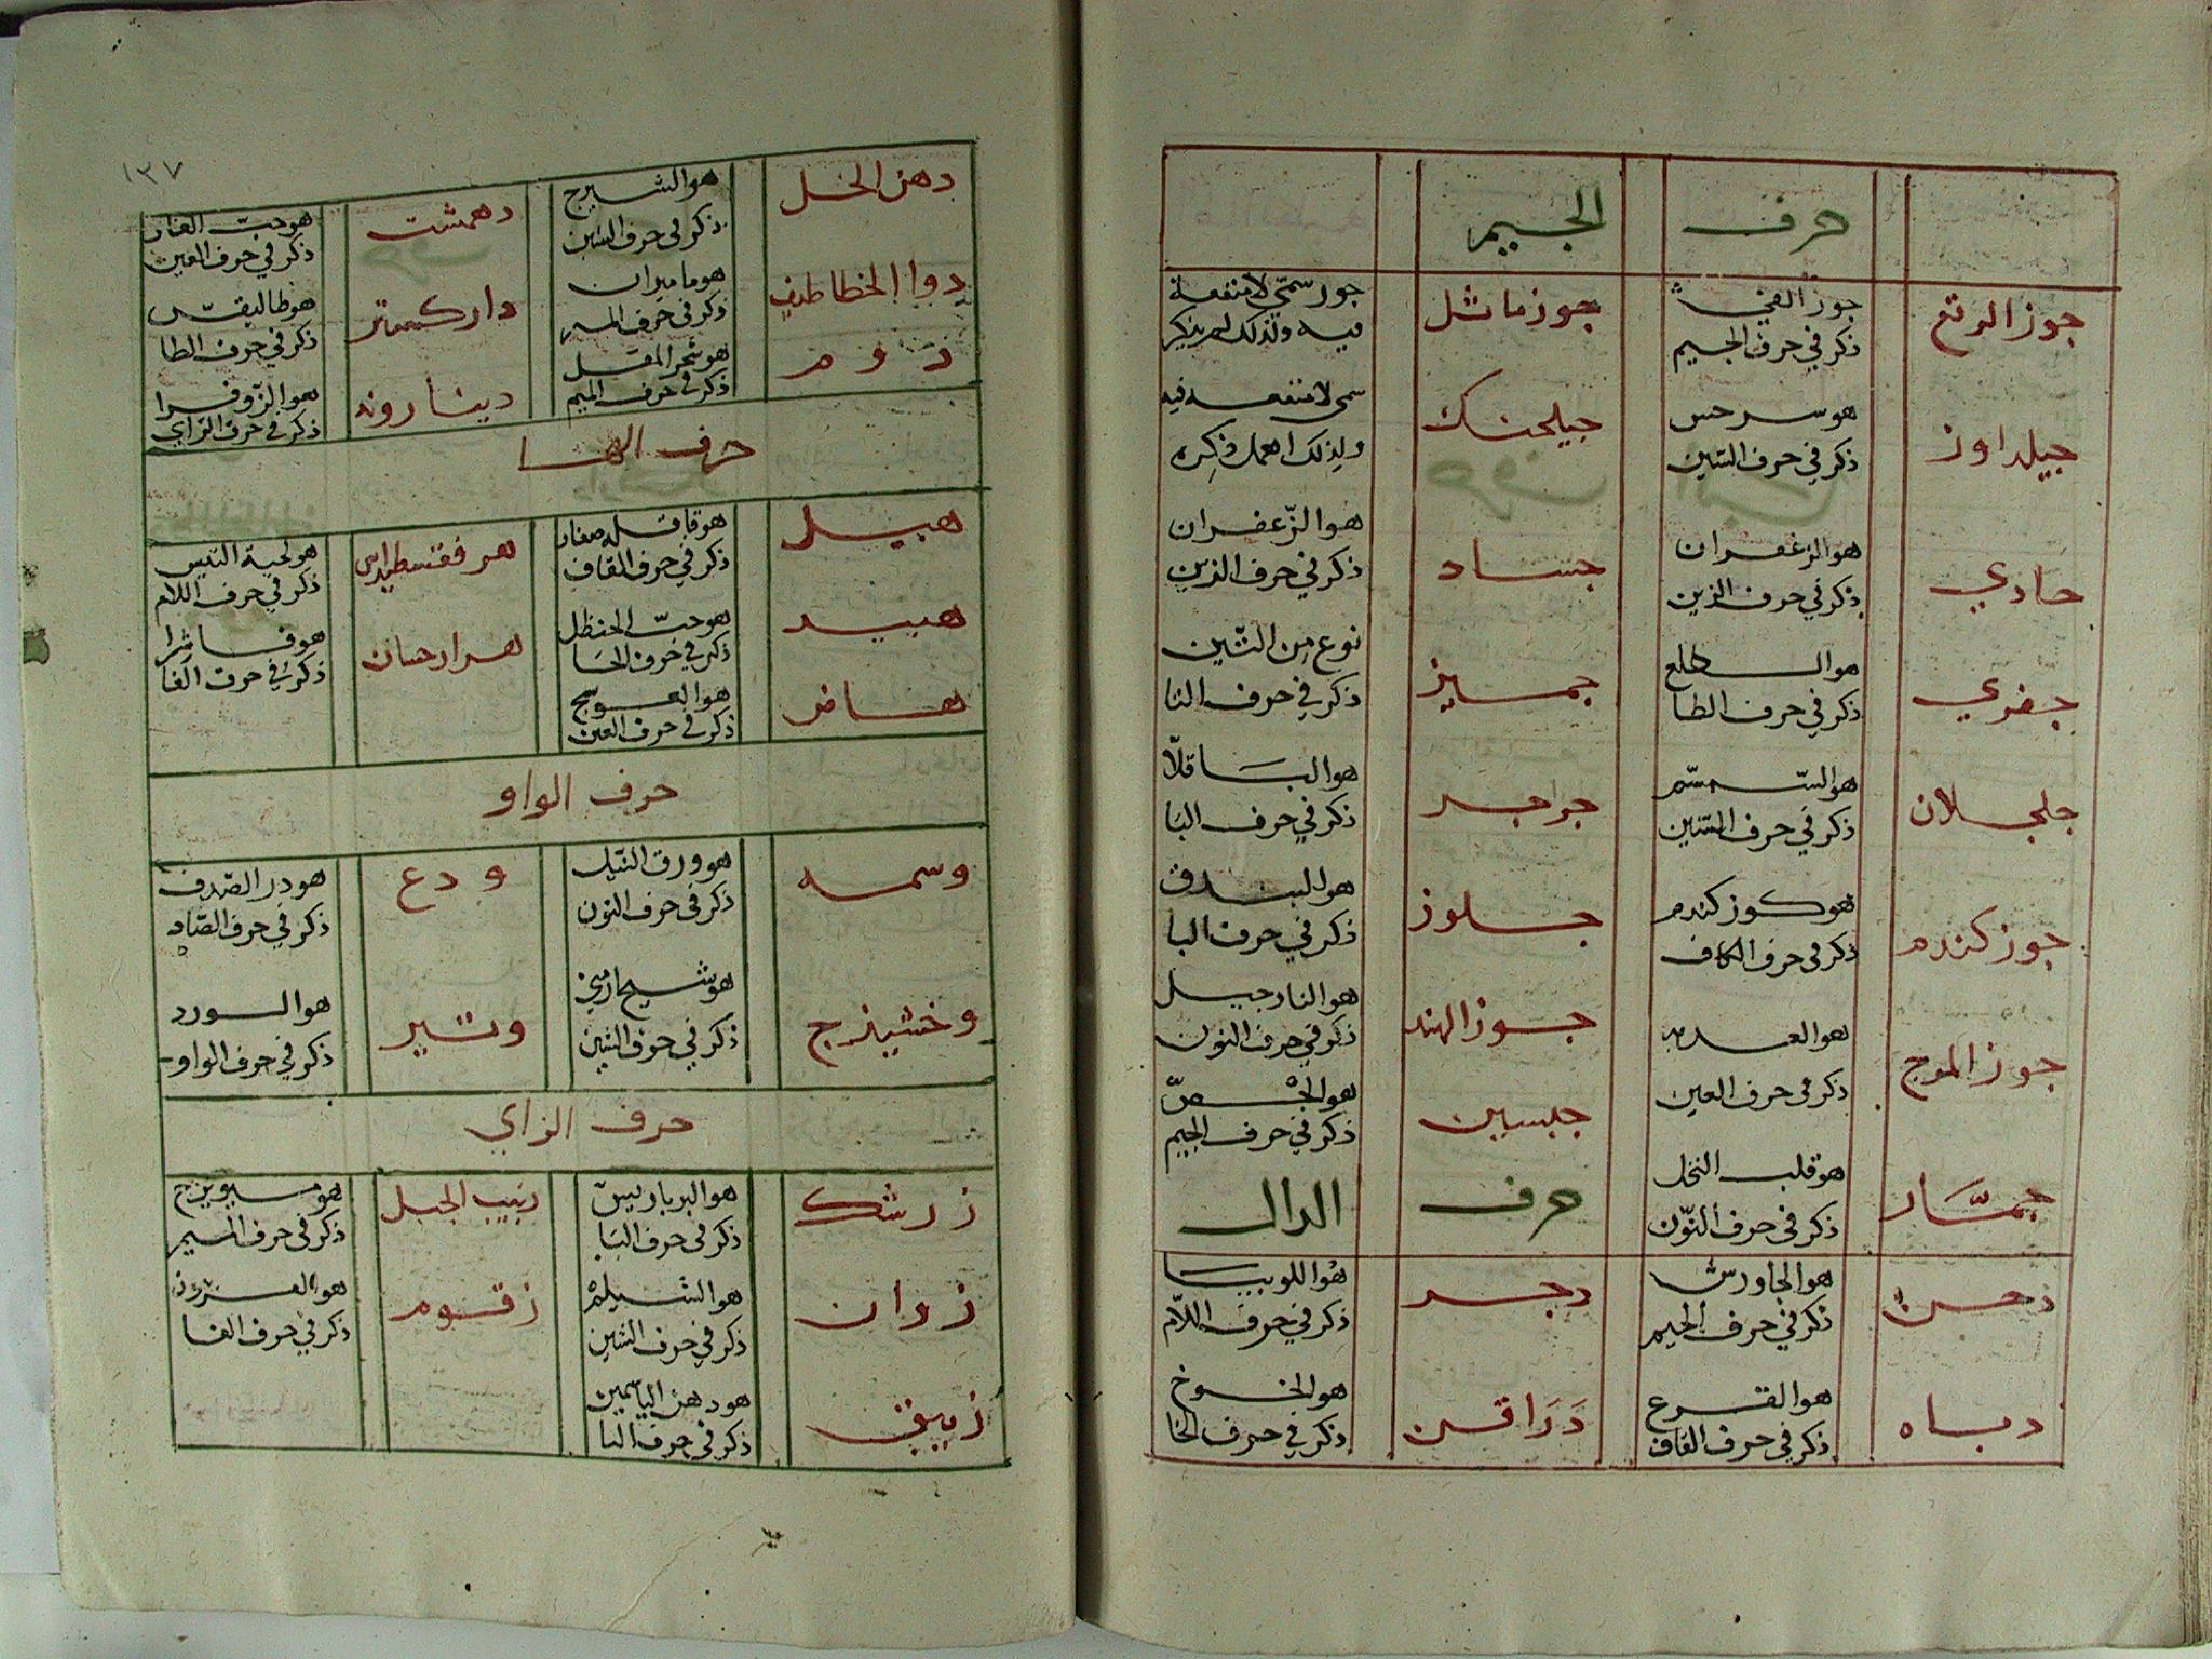 حرف الجيم
جوز الرقع
جوز القي
ذكر في حرف الجيم
جوز ماثل
جوز سمي لا منفعة
فيه ولذلك لم يذكر
جيلداوز
هو سرخس
ذكر في حرف السين
جيلحنك
سمي لا منفعه فيه
ولذلك اهمل ذكره
حادي
هو الزعفران
ذكر في حرف الزين
جساد
هو الزعفران
ذكر في حرف الزين
جفري
هو الطلع
ذكر في حرف الطا
جميز
نوع من التين
ذكر في حرف التا
جلجلان
هو السمسم
ذكر في حرف السين
جرجر
هو الباقلا
ذكر في حرف البا
جوز كندم
هو كوز كندم
ذكر في حرف الكاف
جلوز
هو البندق
ذكر في حرف البا
جوز المرج
ذكر في حرف العين
جوز الهند
هو النارجيل
ذكر في حرف النون
جبسين
هو الجص
ذكر في حرف الجيم
جمار
هو قلب النخل
ذكر في حرف النون
حرف الدال
دخن
هو الجاورش
ذكر في حرف الجيم
دجر
هو اللوبيا
ذكر في حرف اللام
دباه
هو القرع
ذكر في حرف القاف
دراقن
هو الخوخ
ذكر في حرف الخا
١٣٧
دهن الخل
هو الشيرج
ذكر في حرف الشين
دهمشت
هو حب الغار
ذكر في حرف الغين
دوا الخطاطيف
هو ماميران
ذكر في حرف الميم
داركسه
هو طاليقس
ذكر في حرف الطا
دوم
هو شجر المقل
ذكر في حرف الميم
دينارونه
هو الزوفرا
ذكر في حرف الزاي
حرف الها
هيل
هو قاقله صغار
ذكر في حرف القاف
هرفقسطيداس
هو لحية التيس
ذكر في حرف اللام
هبيد
هو حب الحنظل
ذكر في حرف الحا
هزارحسان
هو فاشرا
ذكر في حرف الفا
هافر
هو العوسج
ذكر في حرف العين
حرف الواو
وسمه
هو ورق النيل
ذكر في حرف النون
ودع
هو در الصدف
ذكر في حرف الصاد
وخشيزج
هو شيح ارمني
ذكر في حرف الشين
وتير
هو الورد
ذكر في حرف الواو
حرف الزاي
زرشك
هو البرباريس
ذكر في حرف البا
زبيب الجبل
هو ميويزج
ذكر في حرف الميم
زوان
هو الشيلم
ذكر في حرف الشين
زقوم
ذكر في حرف الفا
زيبق
هو دهن الياسمين
ذكر في حرف اليا